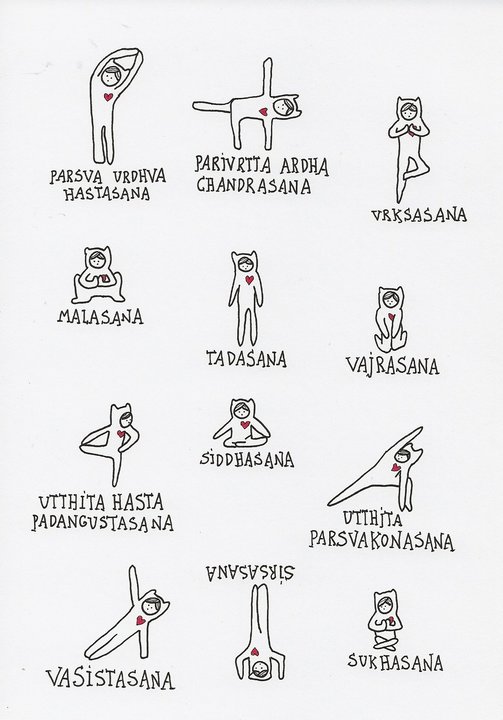 PARSVA URDHVA
HASTASANA
PARIVRTTA ARDHA
CHANDRASANA
VRKSASANA
MALASANA
TADASANA
VAJRASANA
SIDDHASANA
UTTHITA HASTA
PADANGUSTASANA
UTTHITA
PARSVAKONASANA
VASISTASANA
SIRSASANA
SUKHASANA